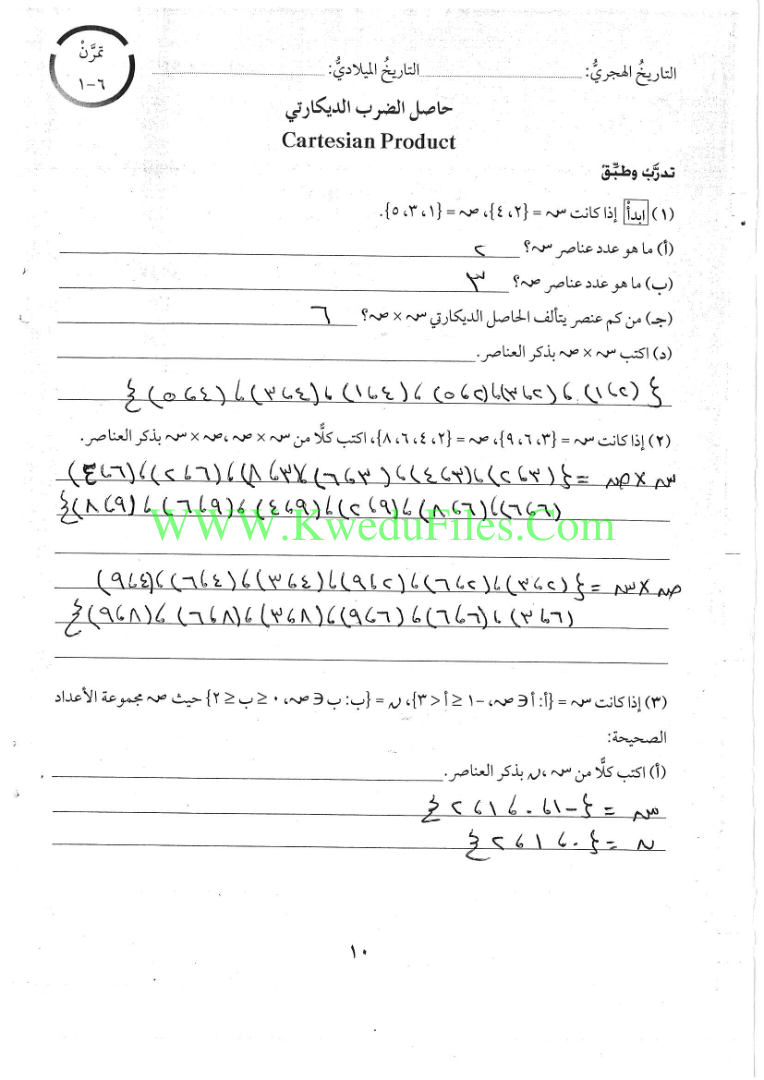 تمرَّنْ
٦-١
التاريخُ الهجريُّ: التاريخُ الميلاديُّ:
حاصل الضرب الديكارتي
Cartesian Product
تدرَّبْ وطبِّقْ
(١) ابدأ إذا كانت سـ = {٢، ٤}، صـ = {١، ٣، ٥}.
(أ) ما هو عدد عناصر سـ؟ ٢
(ب) ما هو عدد عناصر صـ؟ ٣
(جـ) من كم عنصر يتألف الحاصل الديكارتي سـ × صـ؟ ٦
(د) اكتب سـ × صـ بذكر العناصر.
{ (٢،١) ، (٢،٣) ، (٢،٥) ، (٤،١) ، (٤،٣) ، (٤،٥) }
(٢) إذا كانت سـ = {٣، ٦، ٩}، صـ = {٢، ٤، ٦، ٨}، اكتب كلًّا من سـ × صـ، صـ × سـ بذكر العناصر.
سـ × صـ = { (٣،٢) ، (٣،٤) ، (٣،٦) ، (٣،٨) ، (٦،٢) ، (٦،٤)
(٦،٦) ، (٦،٨) ، (٩،٢) ، (٩،٤) ، (٩،٦) ، (٩،٨) }
WWW.KweduFiles.Com
صـ × سـ = { (٢،٣) ، (٢،٦) ، (٢،٩) ، (٤،٣) ، (٤،٦) ، (٤،٩)
(٦،٣) ، (٦،٦) ، (٦،٩) ، (٨،٣) ، (٨،٦) ، (٨،٩) }
(٣) إذا كانت سـ = {أ: أ ∈ صـ، -١ ≤ أ < ٣}، ن = {ب: ب ∈ صـ، ٠ ≤ ب ≤ ٢} حيث صـ مجموعة الأعداد
الصحيحة:
(أ) اكتب كلًّا من سـ، ن بذكر العناصر.
سـ = { -١ ، ٠ ، ١ ، ٢ }
ن = { ٠ ، ١ ، ٢ }
١٠